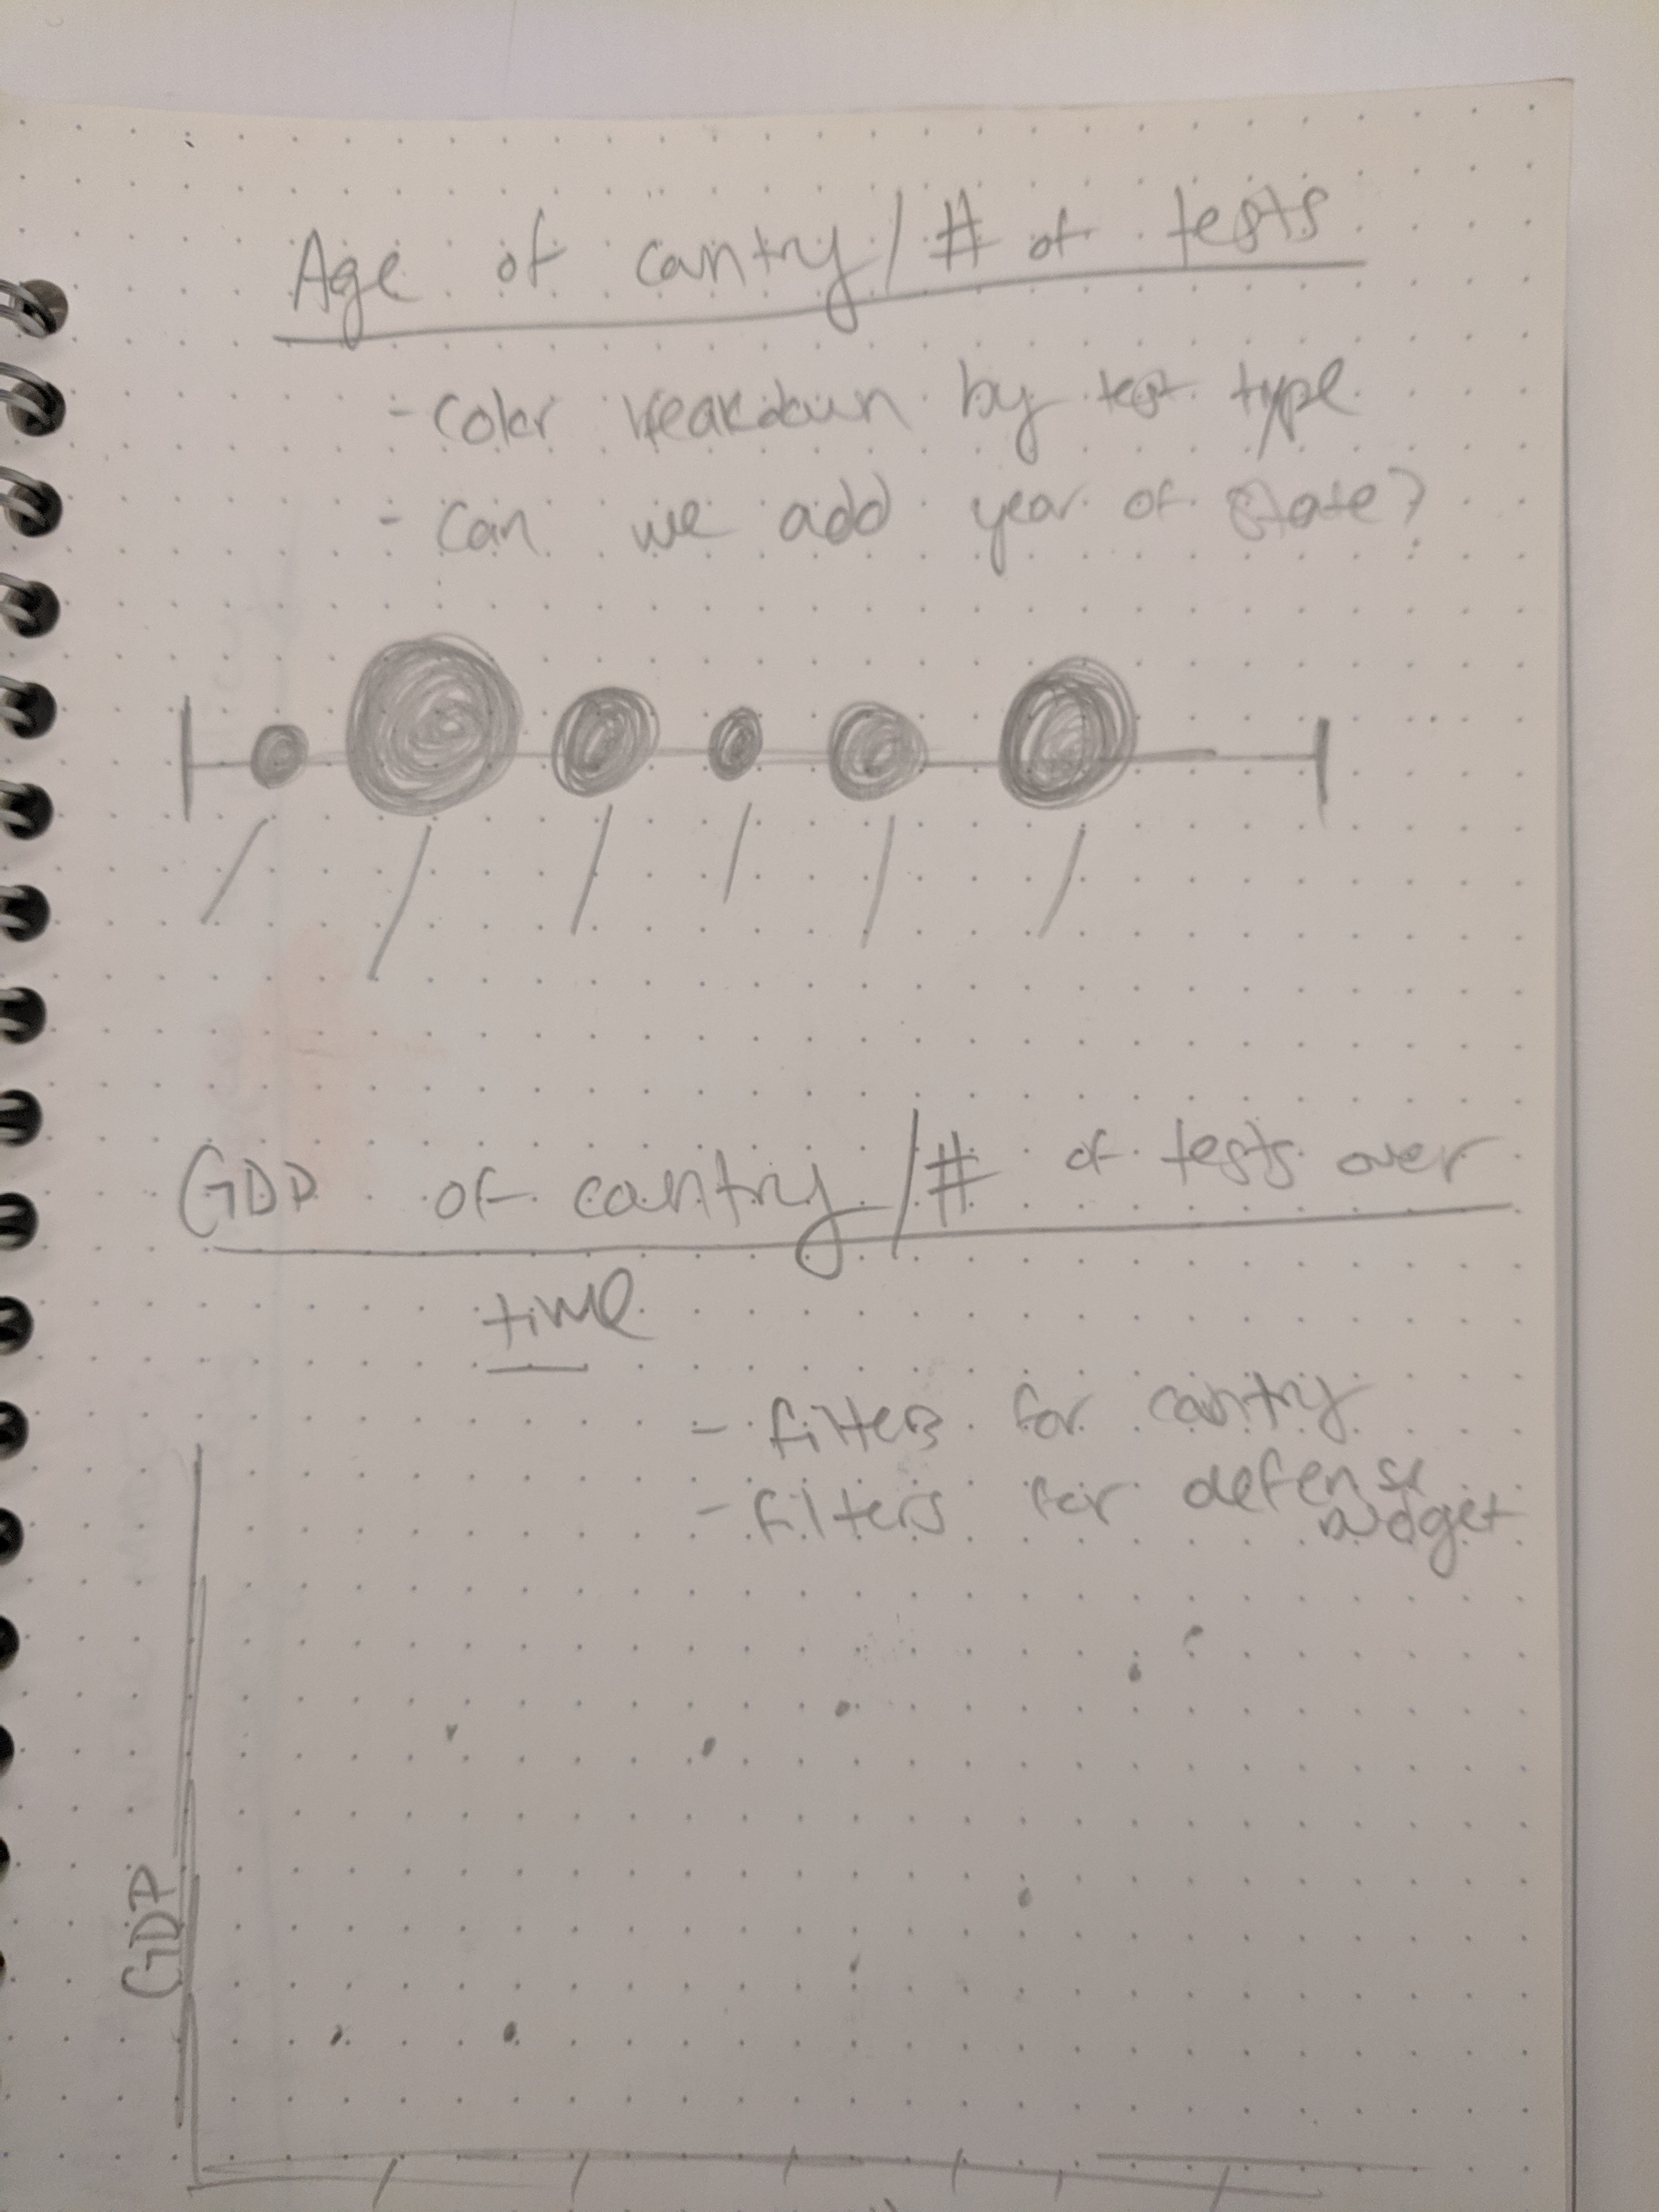 Age of country / # of tests
- color breakdown by test type
- can we add year of state?
GDP of country / # of tests over
time
- filters for country
- filters for defense
budget
GDP